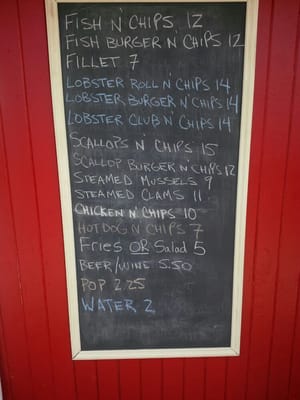 FISH N' CHIPS 12
FISH BURGER N' CHIPS 12
FILLET 7
LOBSTER ROLL N' CHIPS 14
LOBSTER BURGER N' CHIPS 14
LOBSTER CLUB N' CHIPS 14
SCALLOPS N' CHIPS 15
SCALLOP BURGER N' CHIPS 12
STEAMED MUSSELS 9
STEAMED CLAMS 11
CHICKEN N' CHIPS 10
HOTDOG N' CHIPS 7
Fries OR Salad 5
BEER/WINE 5.50
POP 2.25
WATER 2